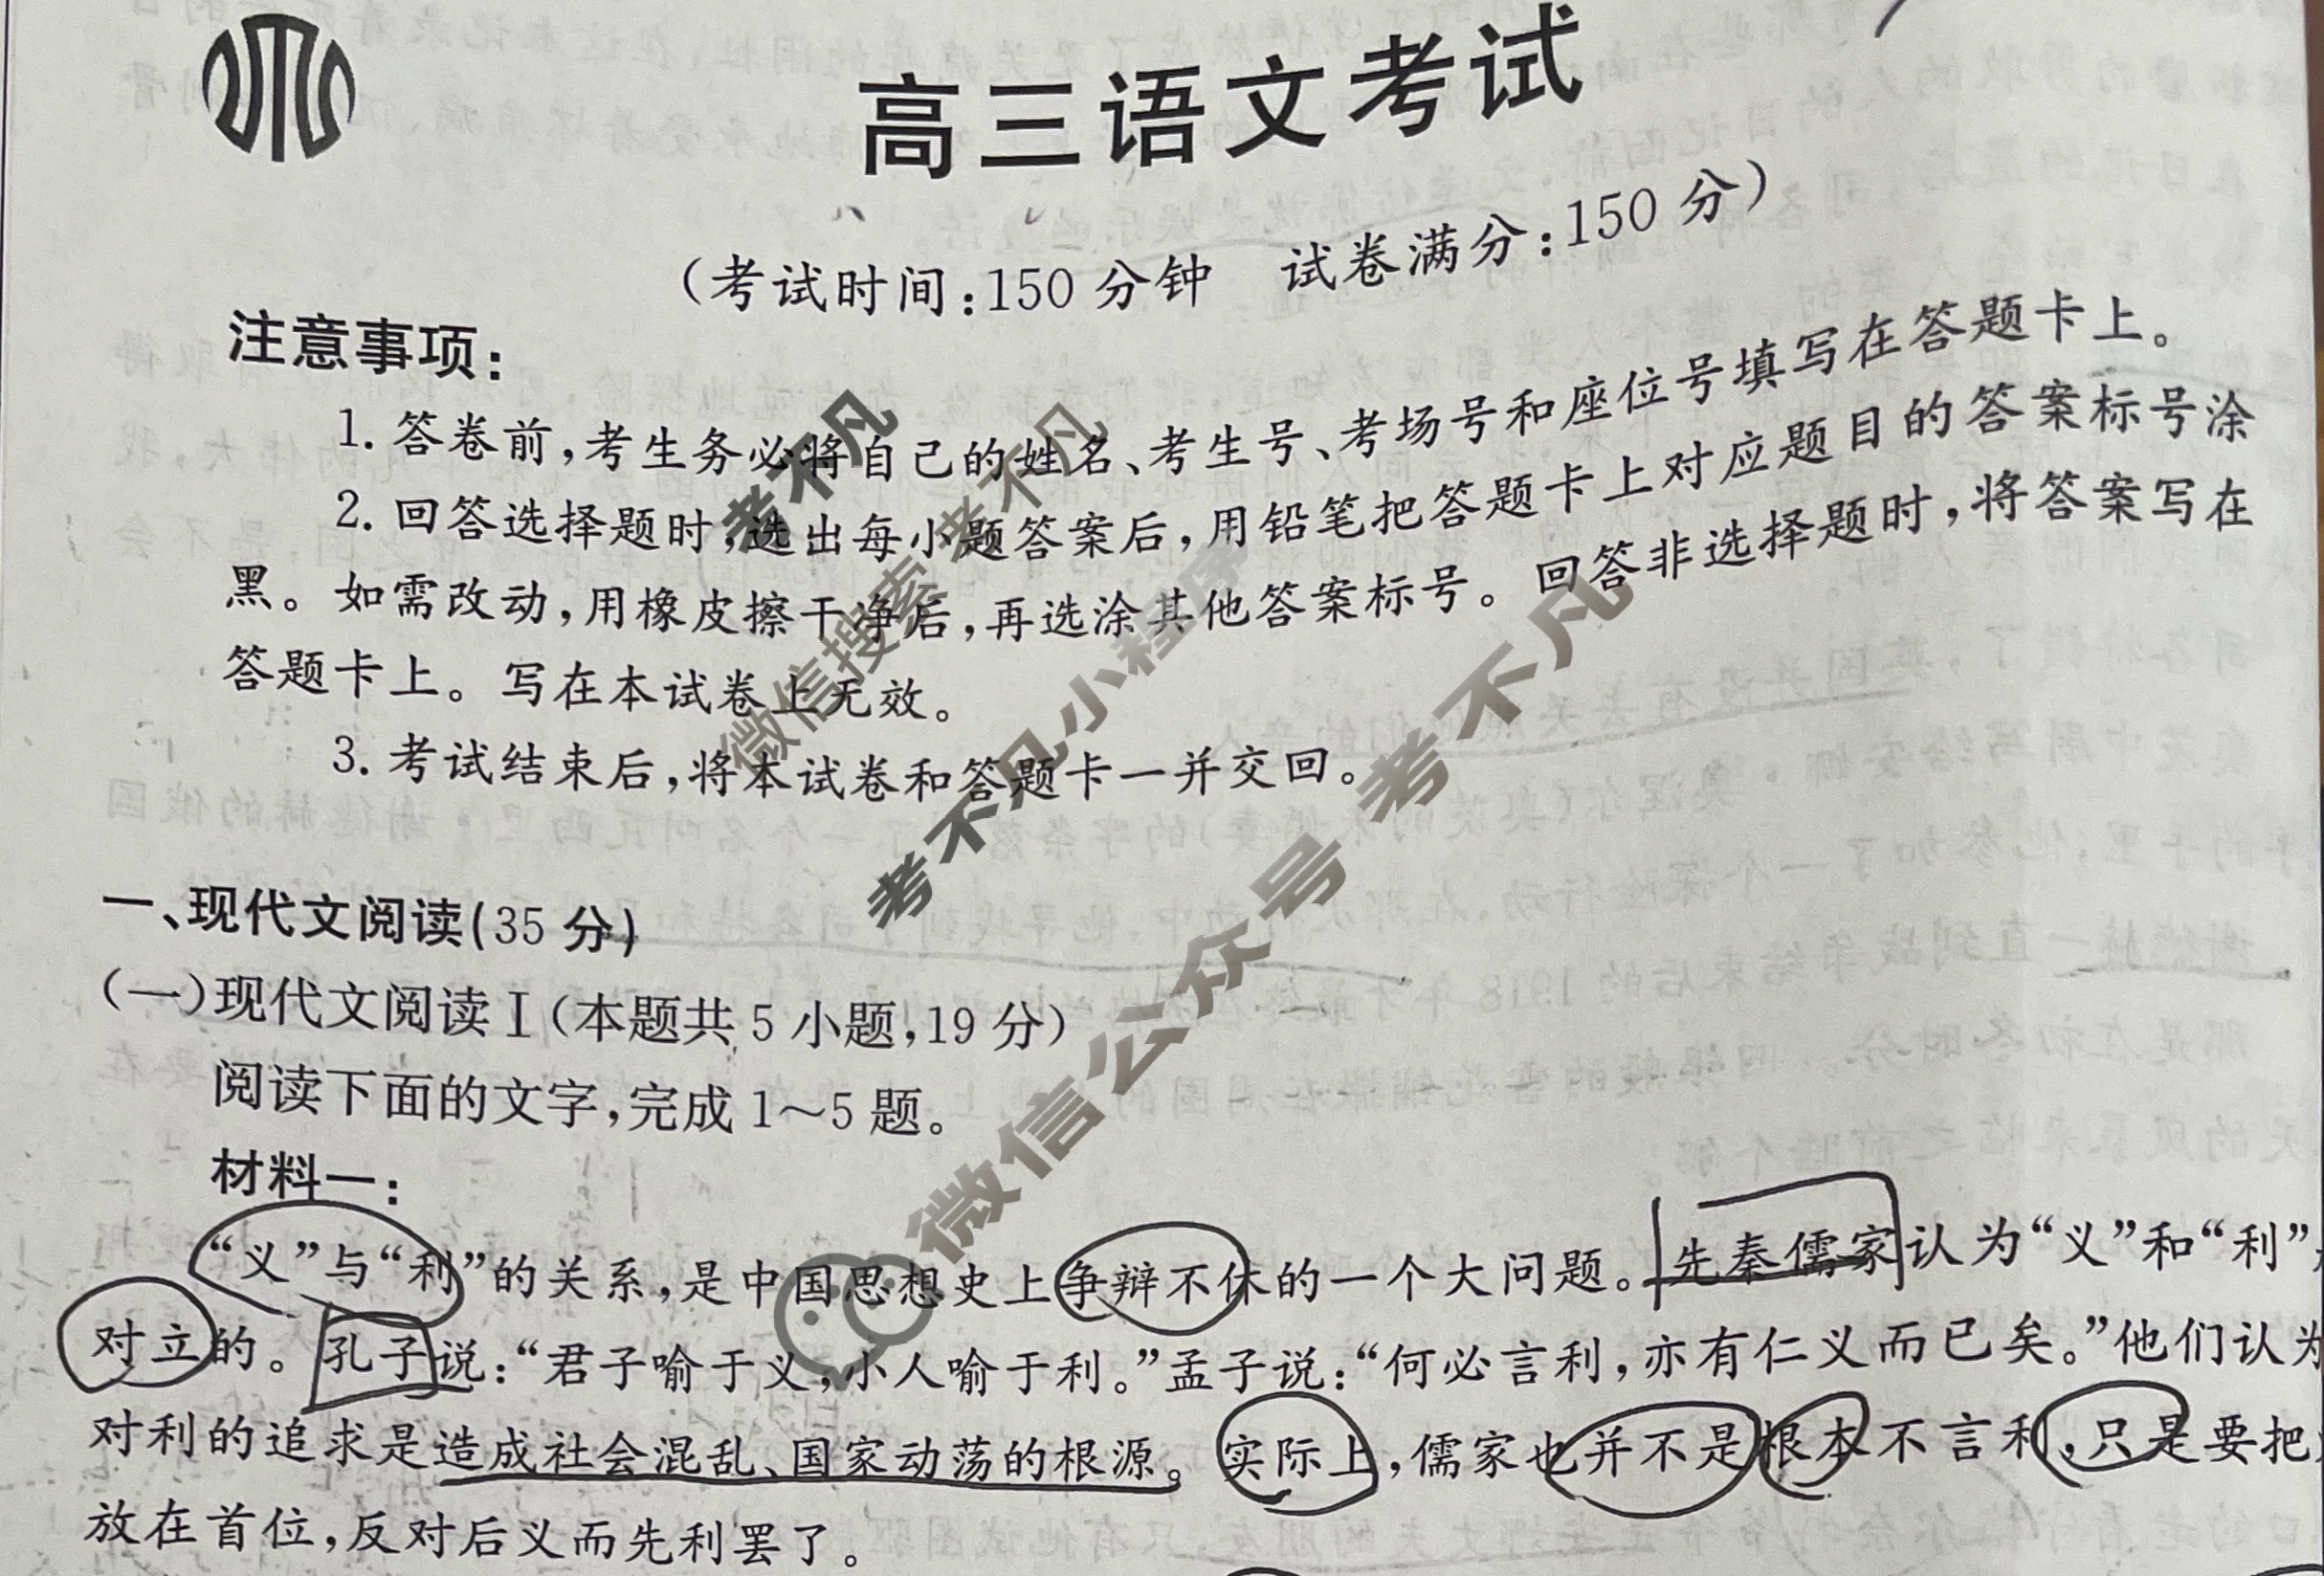 高三语文考试
(考试时间:150分钟 试卷满分:150分)
注意事项:
1. 答卷前,考生务必将自己的姓名、考生号、考场号和座位号填写在答题卡上。
2. 回答选择题时,选出每小题答案后,用铅笔把答题卡上对应题目的答案标号涂
黑。如需改动,用橡皮擦干净后,再选涂其他答案标号。回答非选择题时,将答案写在
答题卡上。写在本试卷上无效。
3. 考试结束后,将本试卷和答题卡一并交回。
考不凡
微信搜索 考不凡
考不凡小程序
微信公众号 考不凡
一、现代文阅读(35分)
(一)现代文阅读Ⅰ(本题共5小题,19分)
阅读下面的文字,完成1~5题。
材料一:
“义”与“利”的关系,是中国思想史上争辩不休的一个大问题。先秦儒家认为“义”和“利”
对立的。孔子说:“君子喻于义,小人喻于利。”孟子说:“何必言利,亦有仁义而已矣。”他们认为
对利的追求是造成社会混乱、国家动荡的根源。实际上,儒家也并不是根本不言利,只是要把
放在首位,反对后义而先利罢了。